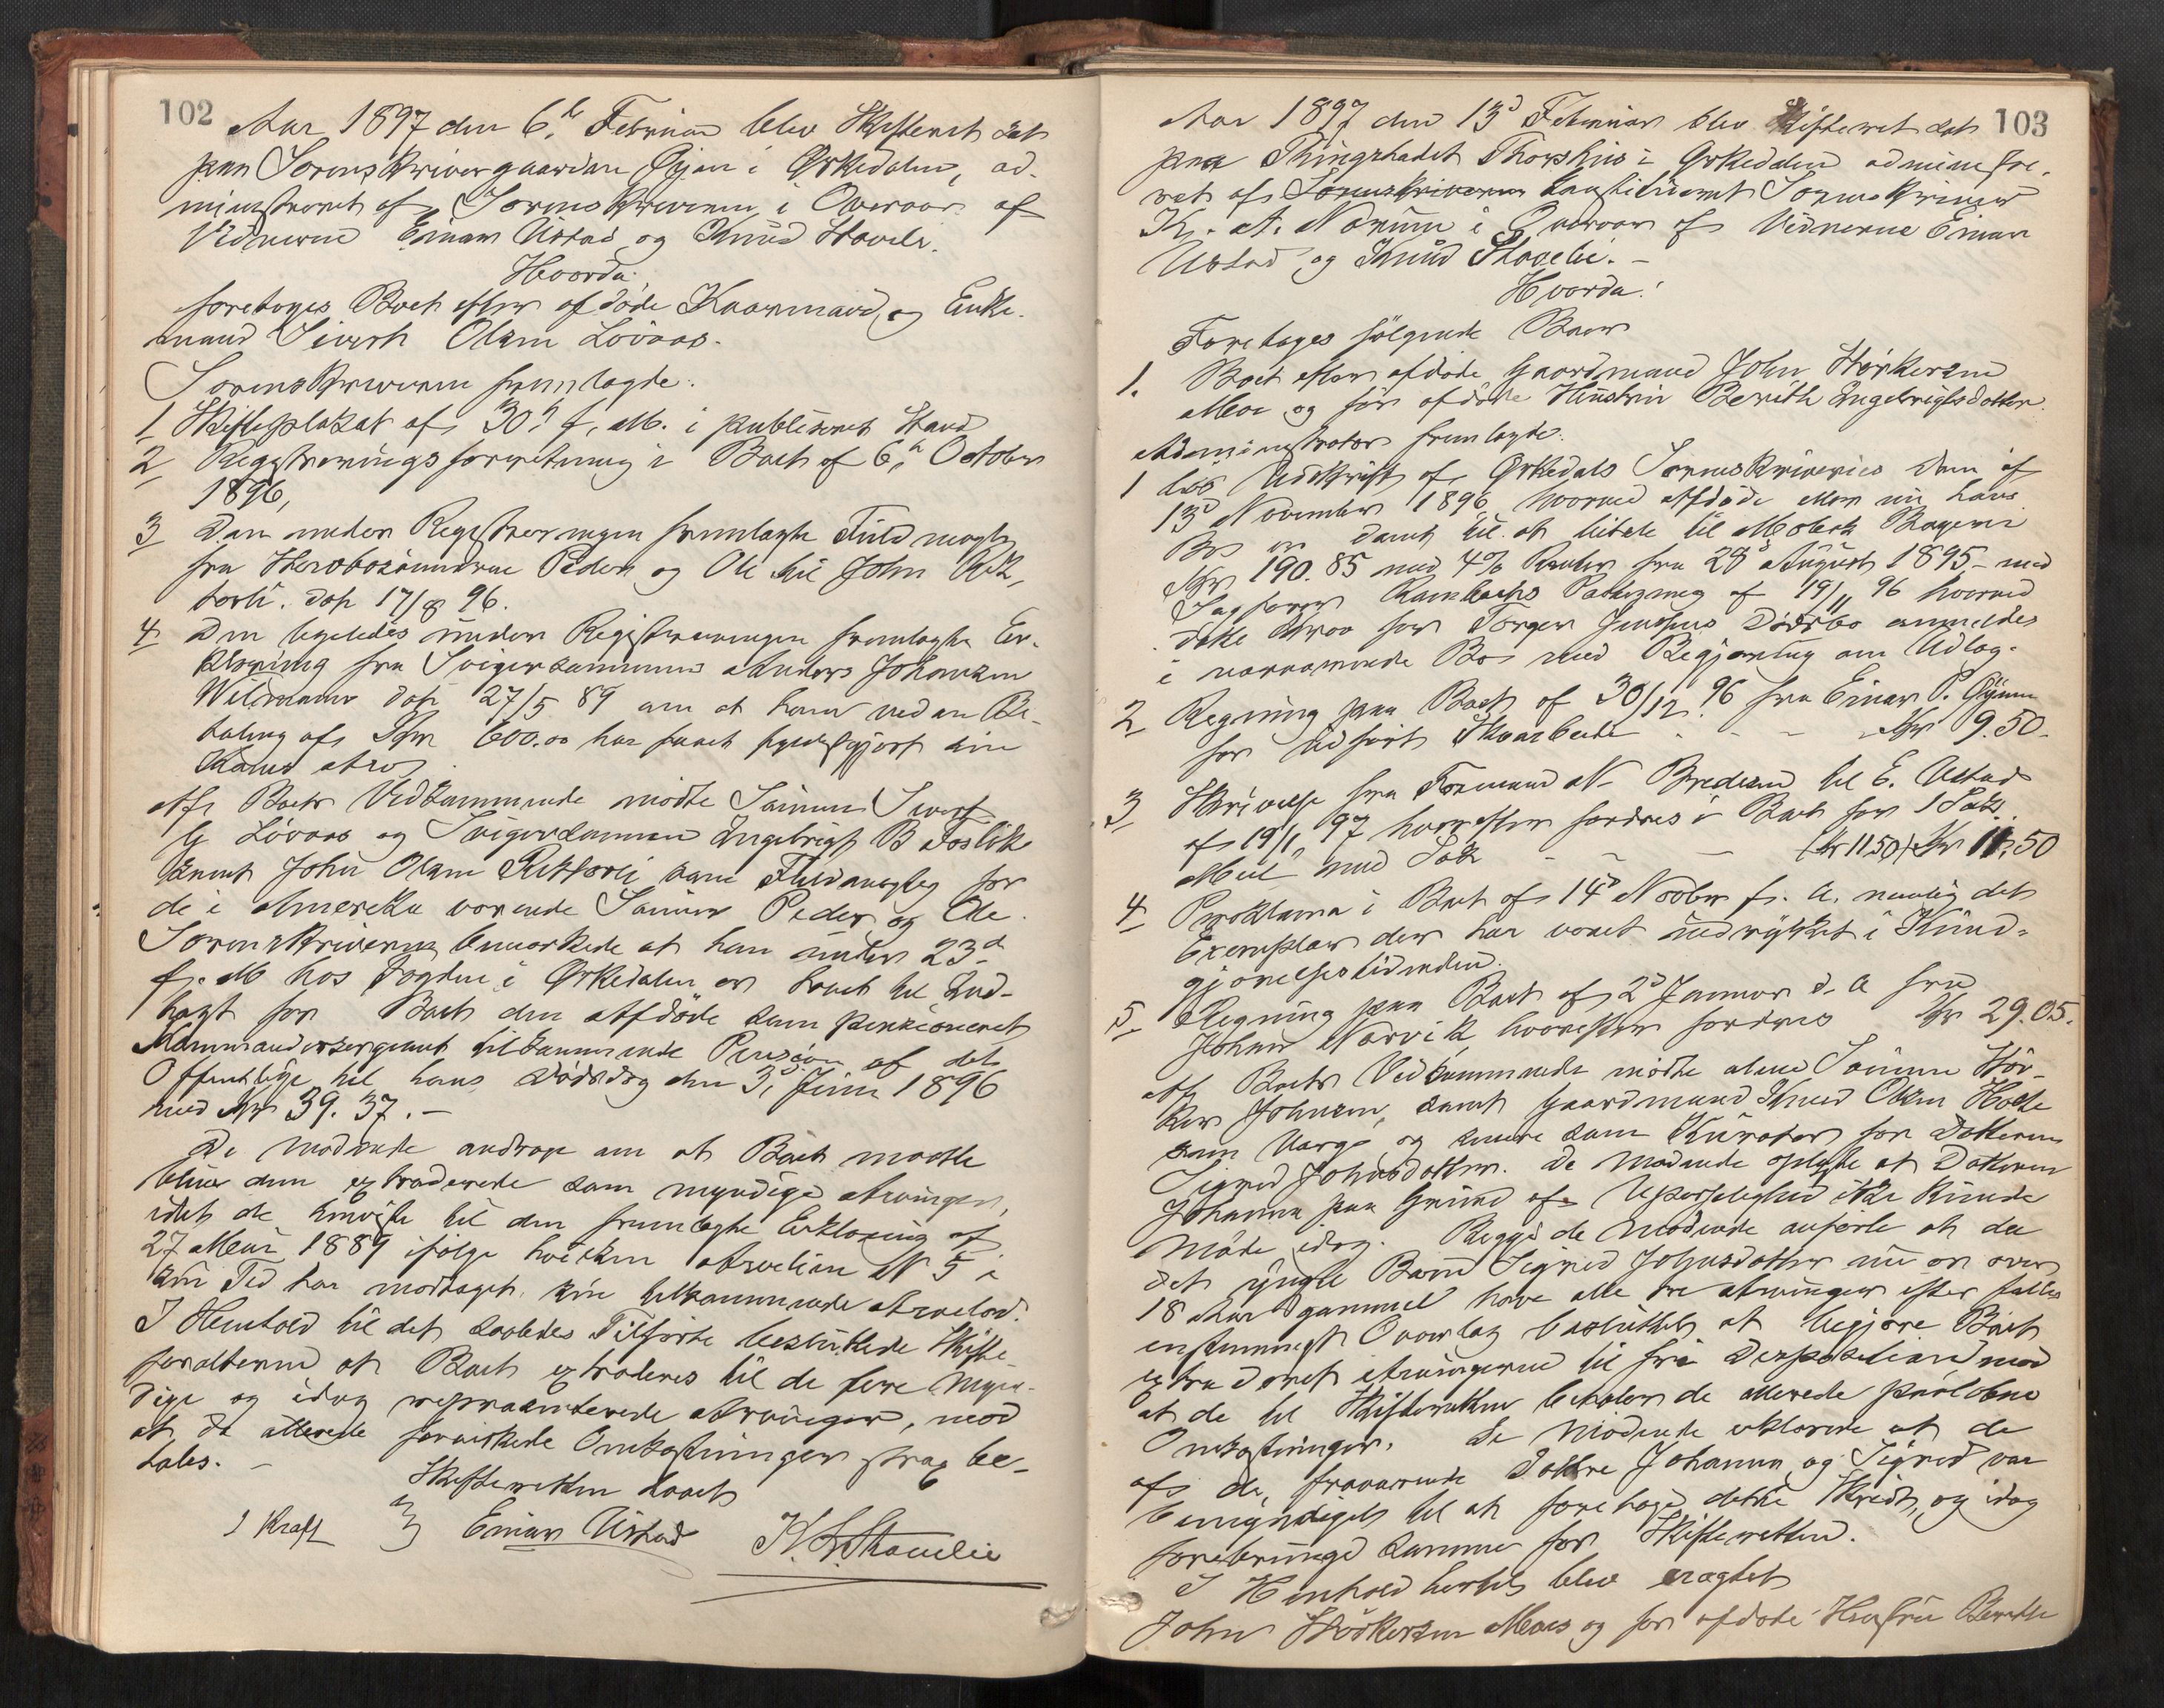 102
Aar 1897 den 6te Februar blev Skifteret sat
paa Sorenskrivergaarden Øyan i Orkedalen, ad-
ministreret af Sorenskriveren i Overvær af
Vidnerne Einar Ustad og Knud Stavli.
Hvorda:
foretoges Boet efter afdøde Kaarmand og Enke-
mand Sivert Olsen Løvaas.
Sorenskriveren fremlagde:
1 Skifteplakat af 30. f. M. i publiseret Stand
2 Registreringsforretning i Boet af 6te October
1896,
3 Den under Registreringen fremlagte Fuldmagt
fra Herboesønnerne Peder og Ole til John
dat 17/8 96.
4 Den ligeledes under Registreringen fremlagte Er-
klæring fra Svigersønnen Anders Johansen
Wildmann dat 27/5 89 om at have ved en Be-
taling af Kr 600.00 har faaet fyldestgjort sin
Arv.
Af Boets Vedkommende mødte Sønnen Sivert
Løvaas og Svigersønnen Ingebrigt B
samt John Olsen som Fuldmægtig for
de i Amerika værende Sønner Peder og Ole.
Sorenskriveren bemærkede at han under 23d
f. M. hos Fogden i Orkedalen er  til Ind-
tægt for Boet den Afdøde som pensioneret
Kommandersergeant tilkommende Pension af det
Offentlige til hans Dødsdag den 3. Juni 1896
med Kr 39.37.—
De mødende androg om at Boet maatte
blive dem extraderede som myndige Arvinger,
idet de henviste til den fremlagte Erklæring af
27 Mai 1889 ifølge hvilken Arvelin N 5 i
sin Tid har modtaget sin tilkommende Arvelod.
I Henhold til det saaledes Tilførte besluttede Skifte-
forvalteren at Boet extraderes til de fire Myn-
dige og idag repræsenterede Arvinger, mod
at de allerede forvirkede Omkostninger strax be-
tales. —
Skifteretten hævet
J Kraft Einar Ustad K. L. Stavelie
103
Aar 1897 den 13d Februar blev Skifteret sat
paa Thingstedet Thorshus i Orkedalen administre-
ret af Sorenskriveren konstitueret Sorenskriver
K. A. Norum i Overvær af Vidnerne Einar
Ustad og Knud Stavlie. —
Hvorda!
Foretoges følgende Boer
1. Boet efter afdøde Gaardmand John Størkersen
Moe og før afdøde Hustru Berith Ingebrigtsdatter.
Administrator fremlagde:
1 Udskrift af Orkedals Sorenskriveries Dom af
13d November 1896, hvorved Afdøde eller nu hans
Bo er dømt til at betale til
Kr 190.85 med 4% Renter fra 28d August 1895 — med
Sagfører Rambechs Paategning af 19/11 96 hvorved
dette Krav for Torger Jensens Dødsbo anmeldes
i nærværende Bo med Begjæring om Udlæg.
2 Regning paa Boet af 30/12 96 fra Einar P. Øyum
for udført Skoarbeide - - - Kr 9.50.
3 Skrivelse fra Formand N. Bredesen til E. Ustad
af 19/1 97 hvorefter fordres i Boet for 1 Sæk
Meel med Sæk - - - (Kr 11.50) Kr 11.50
4 Proklama i Boet af 14d Novbr f. A. nemlig det
Exemplar der har været indrykket i Kund-
gjørelsestidenden.
5 Regning paa Boet af 2d Januar d. A fra
Johan Norvik, hvorefter fordres Kr 29.05.
Af Boets Vedkommende mødte alene Sønnen Stør-
ker Johnsen, samt Gaardmand Knud Olsen Hoste
som Værge og senere som Kurator for Datteren
Sigrid Johnsdatter. De mødende oplyste at Datteren
Johanna paa Grund af Upasselighed ikke kunde
møde idag. Begge de mødende anførte at da
det yngste Barn Sigrid Johnsdatter nu er over
18 Aar gammel have alle tre Arvinger efter fælles
enstemmigt Overlæg besluttet at begjære Boet
extraderet Arvingerne til fri Disposition mod
at de til Skifteretten betaler de allerede paaløbne
Omkostninger. De mødende erklærede at de
af de fraværende Døttre Johanna og Sigrid var
bemyndiget til at foretage dette Skridt, og idag
frembringe samme for Skifteretten.
I Henhold hertil blev eragtet
John Størkersen Moes og før afdøde Hustru Berethe